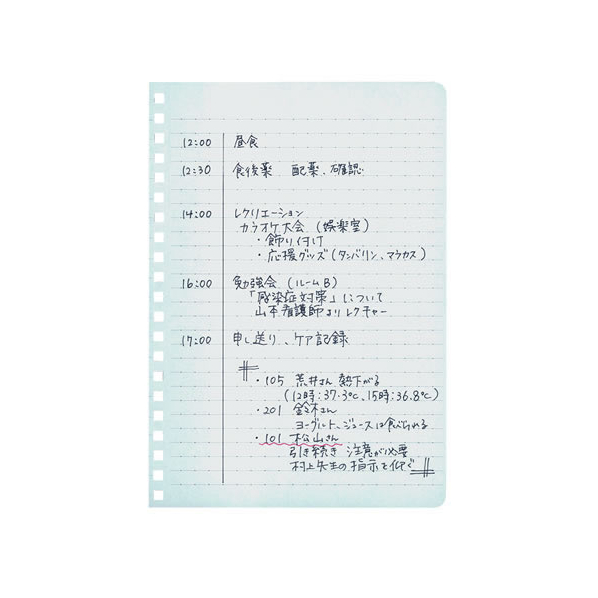 12:00 昼食
12:30 食後薬 配薬、確認
14:00 レクリエーション
カラオケ大会 (娯楽室)
・飾り付け
・応援グッズ (タンバリン、マラカス)
16:00 勉強会 (ルームB)
「感染症対策」について
山本看護師よりレクチャー
17:00 申し送り、ケア記録
・105 荒井さん 熱下がる
(12時:37.3℃、15時:36.8℃)
・201 鈴木さん
ヨーグルト、ジュースは食べられる
・101 松山さん
引き続き 注意が必要
村上先生の指示を仰ぐ